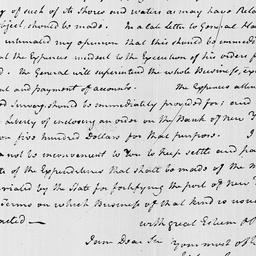 of such of its Shores and waters as may have Rela
object, should be made. In a late Letter to General Ha
intimated my opinion that this should be immedi
at the Expences incident to the Execution of his orders f
d. The General will superintend the whole Business, ex
and payment of accounts. The Expences atten
Survey, should be immediately provided for; and
Liberty of enclosing an order on the Bank of New Y
on five hundred Dollars for that purpose. I
not be inconvenient to You to keep settle and pa
ts of the Expenditures that shall be made of the M
priated by the State for fortifying the port of New
Terms on which Business of that kind is usua
acted —
with great Esteem &
I am Dear Sir your most ob